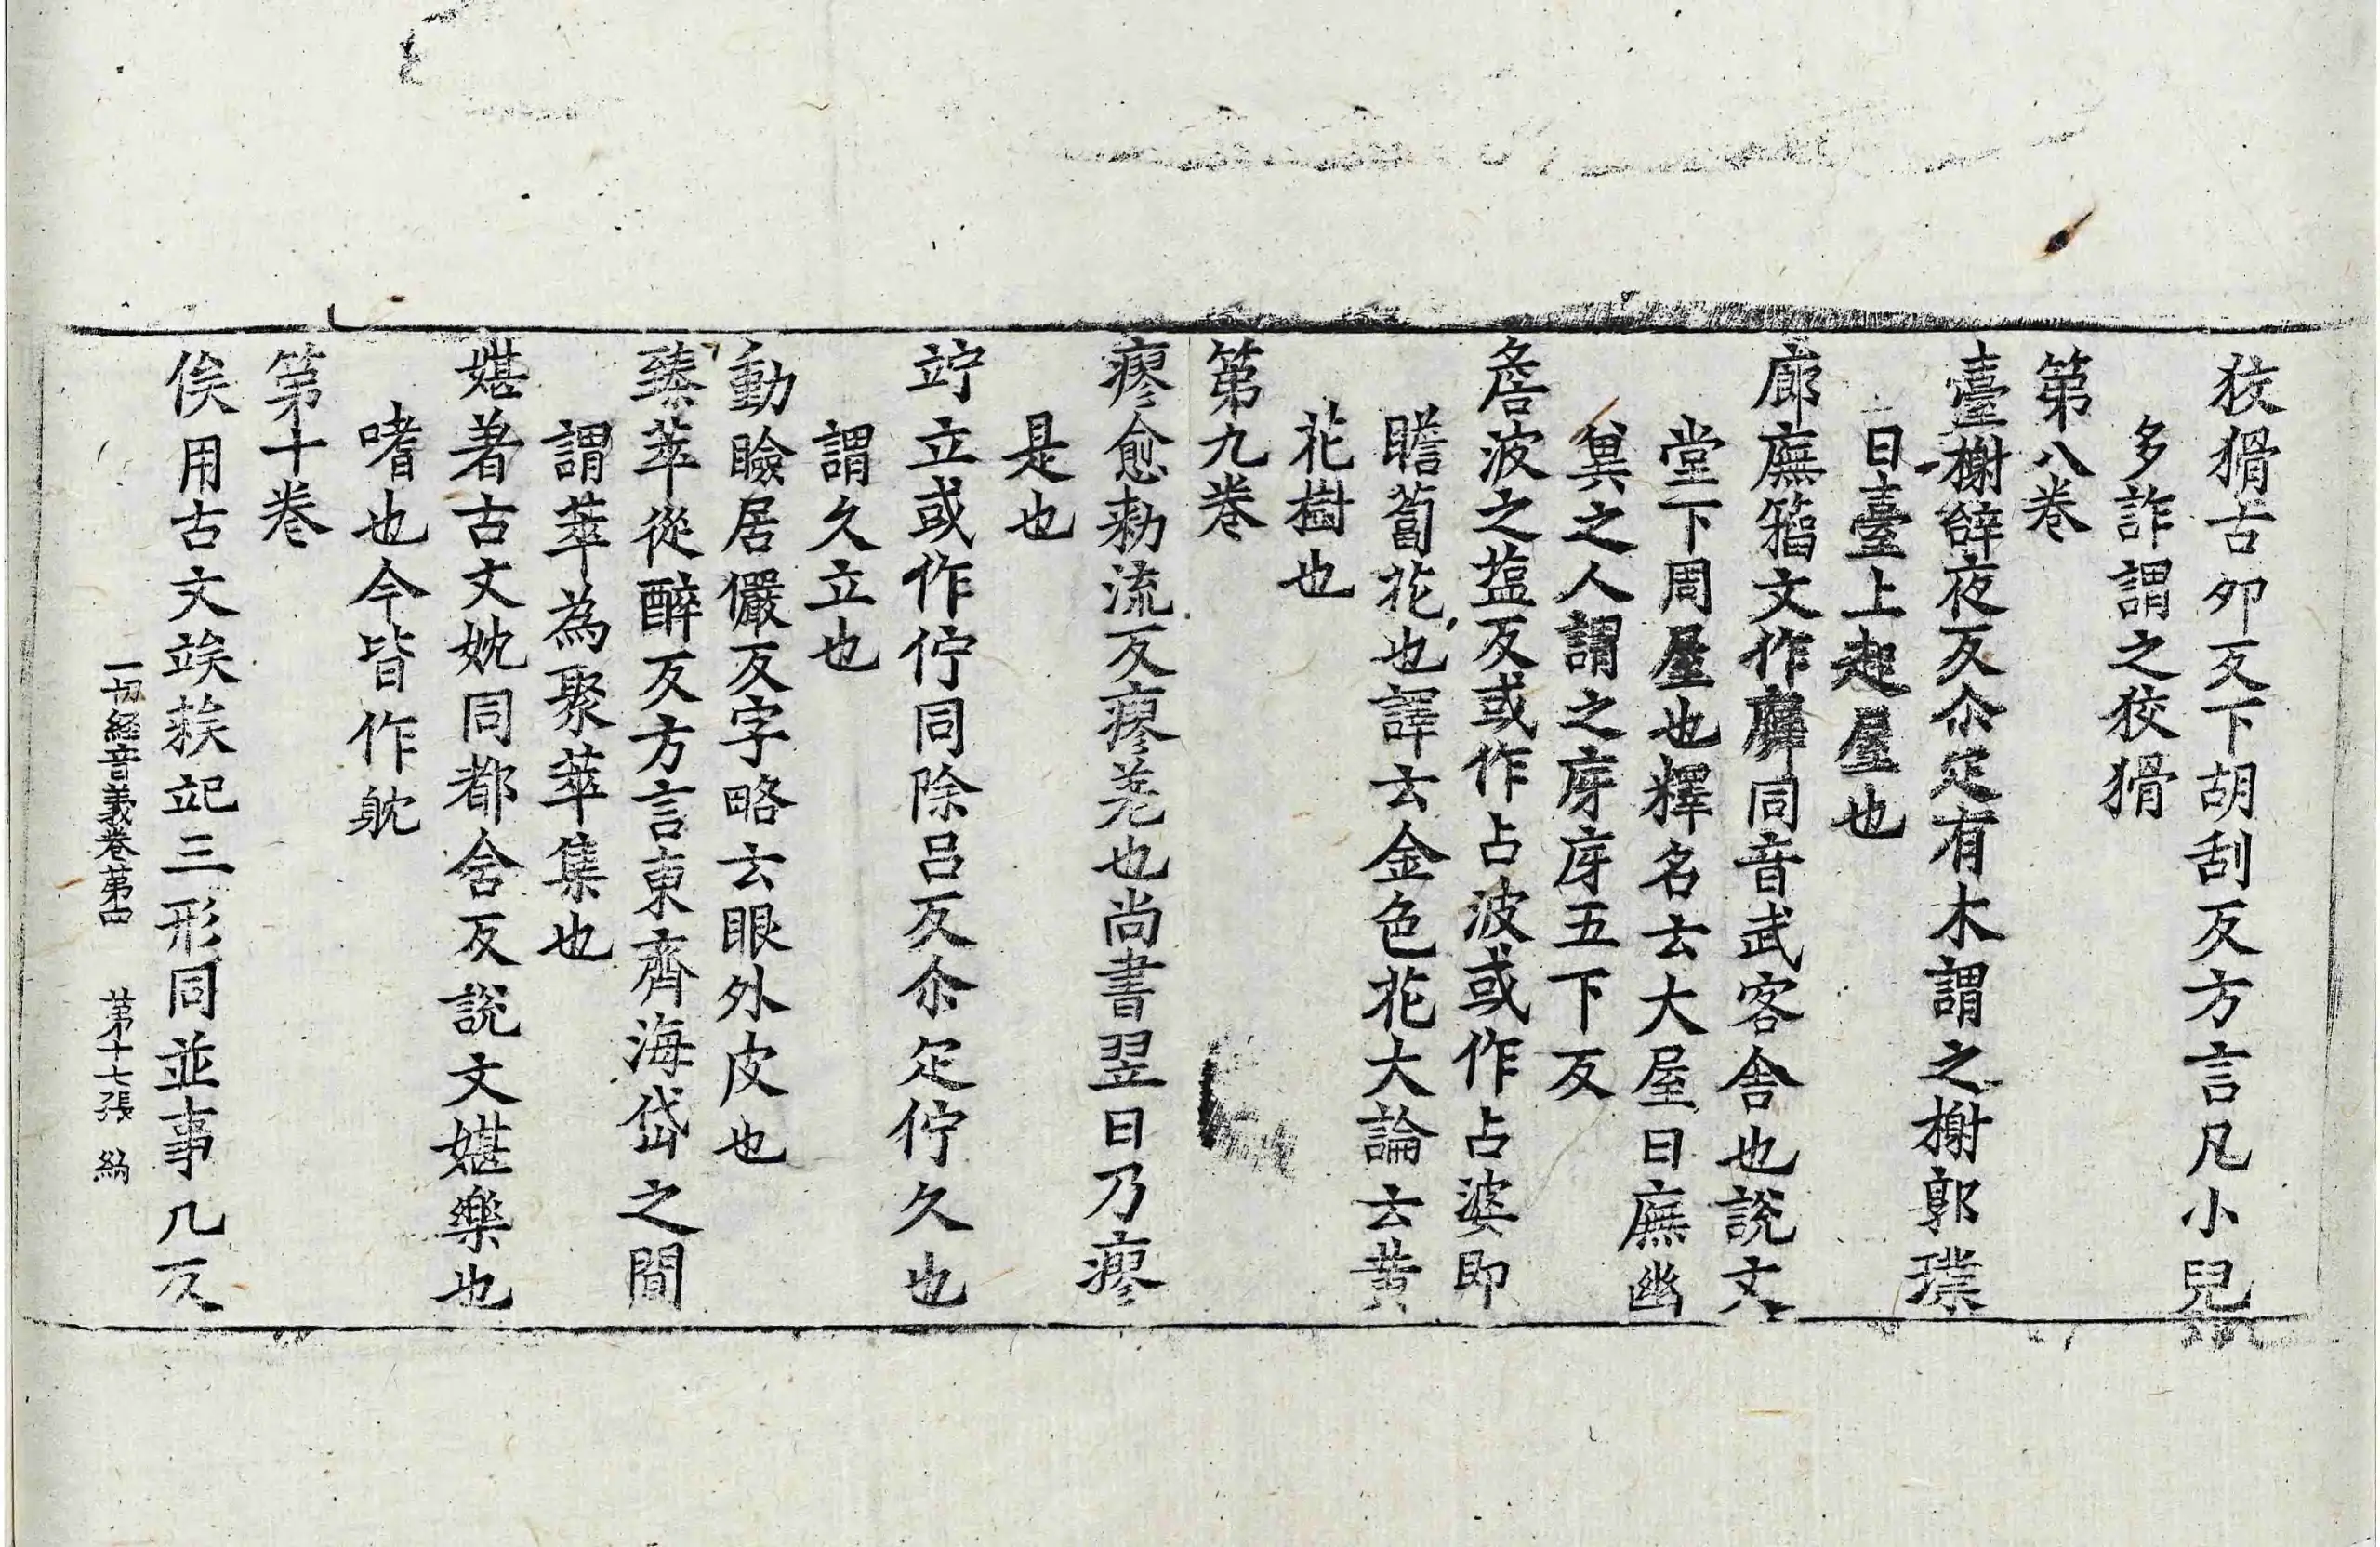 狡猾古夘反下胡刮反方言凡小兒
多詐謂之狡猾
第八巻
臺榭辝夜反尒疋有木謂之榭郭璞
曰臺上起屋也
廊廡籀文作𢋑同音武客舎也說文
堂下周屋也釋名云大屋曰廡幽
兾之人謂之庌庌五下反
詹波之塩反或作占波或作占婆即
瞻蔔花也譯云金色花大論云黄
花樹也
第九巻
瘳愈勑流反瘳差也尚書翌日乃瘳
是也
竚立或作佇同除呂反尒疋佇久也
謂久立也
動瞼居儼反字略云眼外皮也
臻萃從醉反方言東齊海岱之間
謂萃為聚萃集也
媅著古文妉同都含反說文媅樂也
嗜也今皆作躭
第十巻
俟用古文竢𥏳䇃三形同並事几反
一切経音義巻第四 第十七張 納